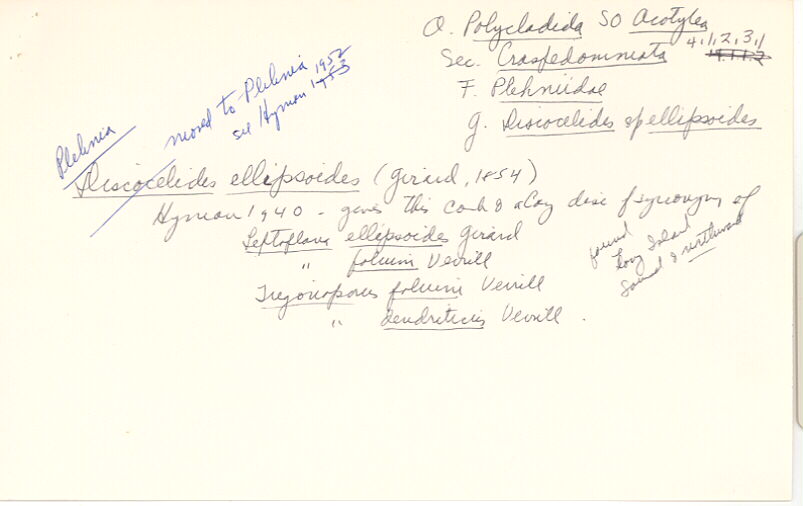 O. Polycladida SO Acotylea
4,1,2,3,1
Sec. Craspedommata
F. Plehniidae
g. Discocelides sp ellipsoides
Plehnia
moved to Plehnia 1952
see Hyman 1953
Discocelides ellipsoides (Girard, 1854)
Hyman 1940 - gives this comb & a long disc of synonymy of
Leptoplana ellipsoides Girard
" folium Verrill
Trigonoporus folium Verrill
" dendriticus Verrill.
found
Long Island
Sound & northward